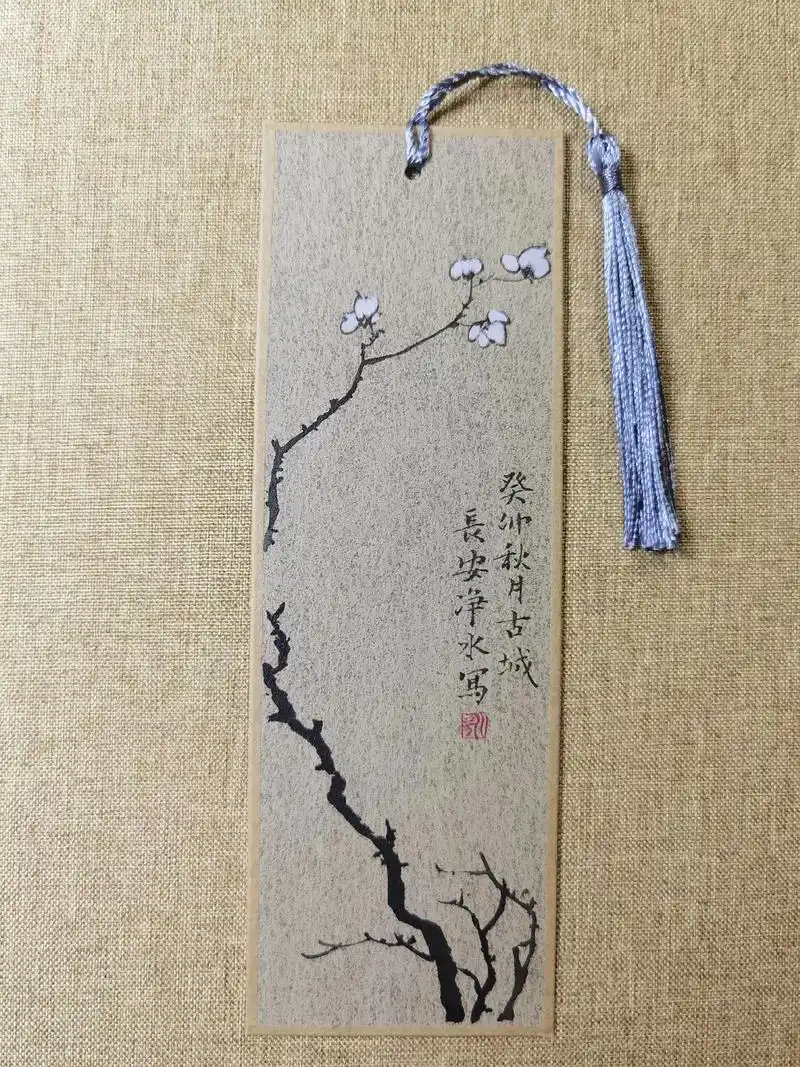 癸卯秋月古城
長安净水寫